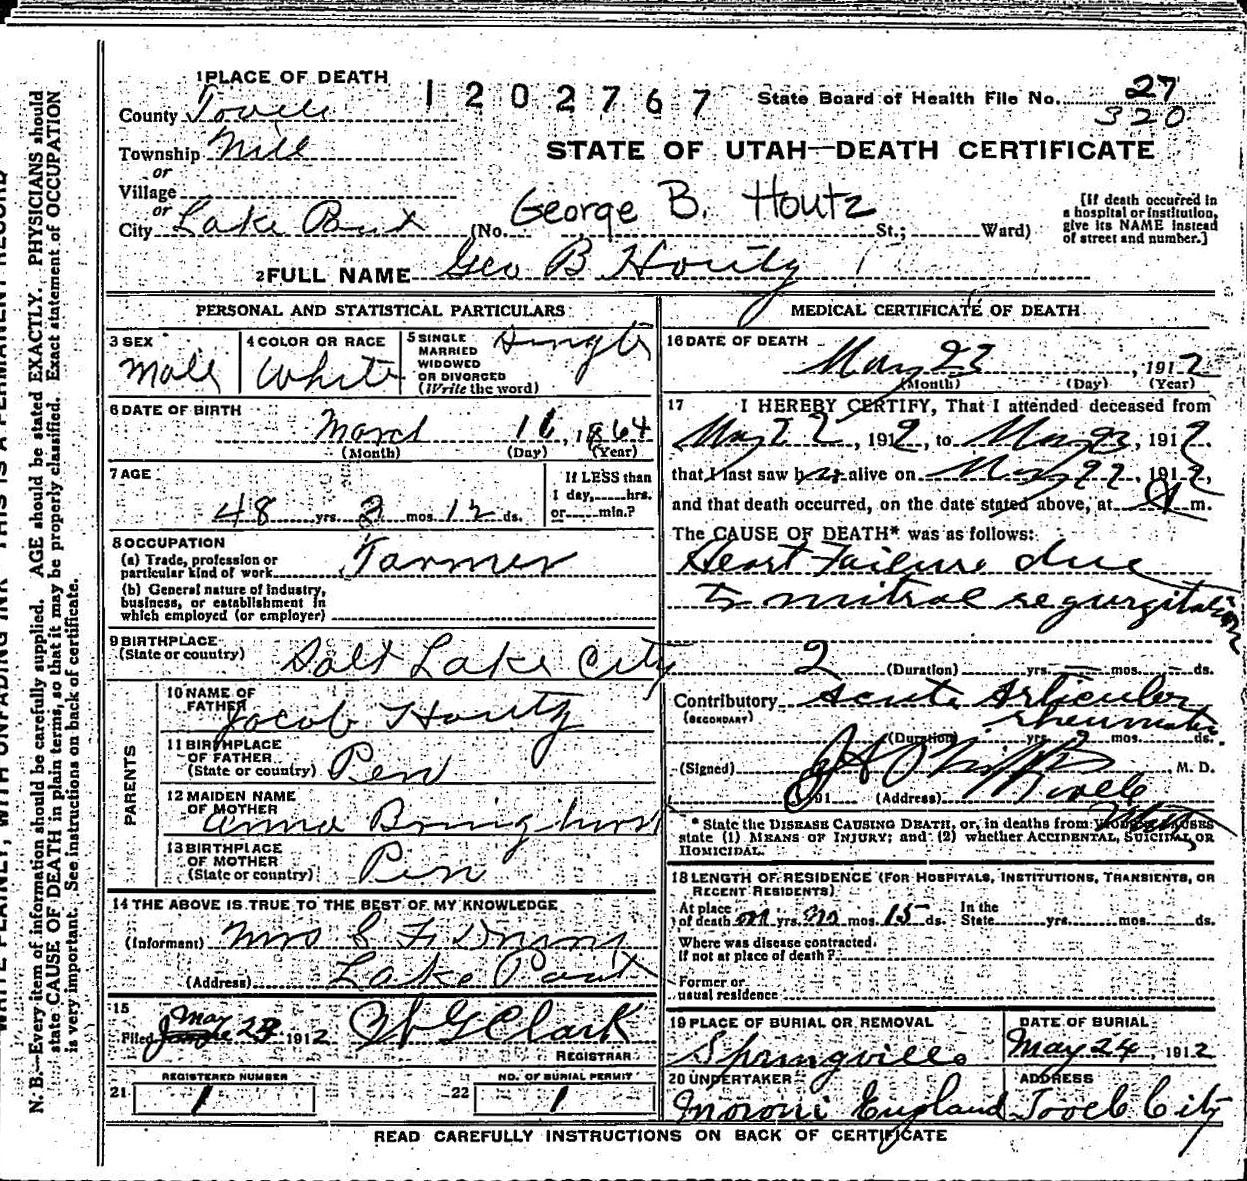 1 PLACE OF DEATH
1202767
State Board of Health File No. 27
320
County Tooele
STATE OF UTAH—DEATH CERTIFICATE
Township Mill
or
Village
or
City Lake Point (No. George B. Houtz St.; Ward)
[If death occurred in
a hospital or institution,
give its NAME instead
of street and number.]
2 FULL NAME Geo B Houtz
PERSONAL AND STATISTICAL PARTICULARS
3 SEX
Male
4 COLOR OR RACE
White
5 SINGLE
MARRIED
WIDOWED
OR DIVORCED
(Write the word)
Single
6 DATE OF BIRTH
March 16, 1864
(Month) (Day) (Year)
7 AGE
48 yrs. 2 mos. 12 ds.
If LESS than
1 day, hrs.
or min.?
8 OCCUPATION
(a) Trade, profession or
particular kind of work Farmer
(b) General nature of industry,
business, or establishment in
which employed (or employer)
9 BIRTHPLACE
(State or country) Salt Lake City
PARENTS
10 NAME OF
FATHER Jacob Houtz
11 BIRTHPLACE
OF FATHER
(State or country) Pen
12 MAIDEN NAME
OF MOTHER Anna Bringhurst
13 BIRTHPLACE
OF MOTHER
(State or country) Pen
14 THE ABOVE IS TRUE TO THE BEST OF MY KNOWLEDGE
(Informant) Mrs
(Address) Lake Point
15
Filed May 28 1912 Clark
REGISTRAR
REGISTERED NUMBER
21 1
NO. OF BURIAL PERMIT
22 1
MEDICAL CERTIFICATE OF DEATH
16 DATE OF DEATH
May 23, 1912
(Month) (Day) (Year)
17 I HEREBY CERTIFY, That I attended deceased from
May 22, 1912, to May 23, 1912.
that I last saw h alive on May 22, 1912,
and that death occurred, on the date stated above, at m.
The CAUSE OF DEATH* was as follows:
Heart Failure due
to mitral regurgitation
2 (Duration) yrs. — mos. — ds.
Contributory Acute Articular
(SECONDARY) rheumatism
(Duration) yrs. 2 mos. ds.
(Signed) M. D.
191 (Address) Tooele
Utah
* State the DISEASE CAUSING DEATH, or, in deaths from VIOLENT CAUSES
state (1) MEANS OF INJURY; and (2) whether ACCIDENTAL, SUICIDAL OR
HOMICIDAL.
18 LENGTH OF RESIDENCE (FOR HOSPITALS, INSTITUTIONS, TRANSIENTS, OR
RECENT RESIDENTS)
At place In the
of death yrs. mos. 15 ds. State yrs. mos. ds.
Where was disease contracted.
if not at place of death?
Former or
usual residence
19 PLACE OF BURIAL OR REMOVAL
Springville
DATE OF BURIAL
May 24, 1912
20 UNDERTAKER
Moroni England
ADDRESS
Tooele City
READ CAREFULLY INSTRUCTIONS ON BACK OF CERTIFICATE
N. B.—Every item of information should be carefully supplied. AGE should be stated EXACTLY. PHYSICIANS should
state CAUSE OF DEATH in plain terms, so that it may be properly classified. Exact statement of OCCUPATION
is very important. See instructions on back of certificate.
WRITE PLAINLY, WITH UNFADING INK—THIS IS A PERMANENT RECORD